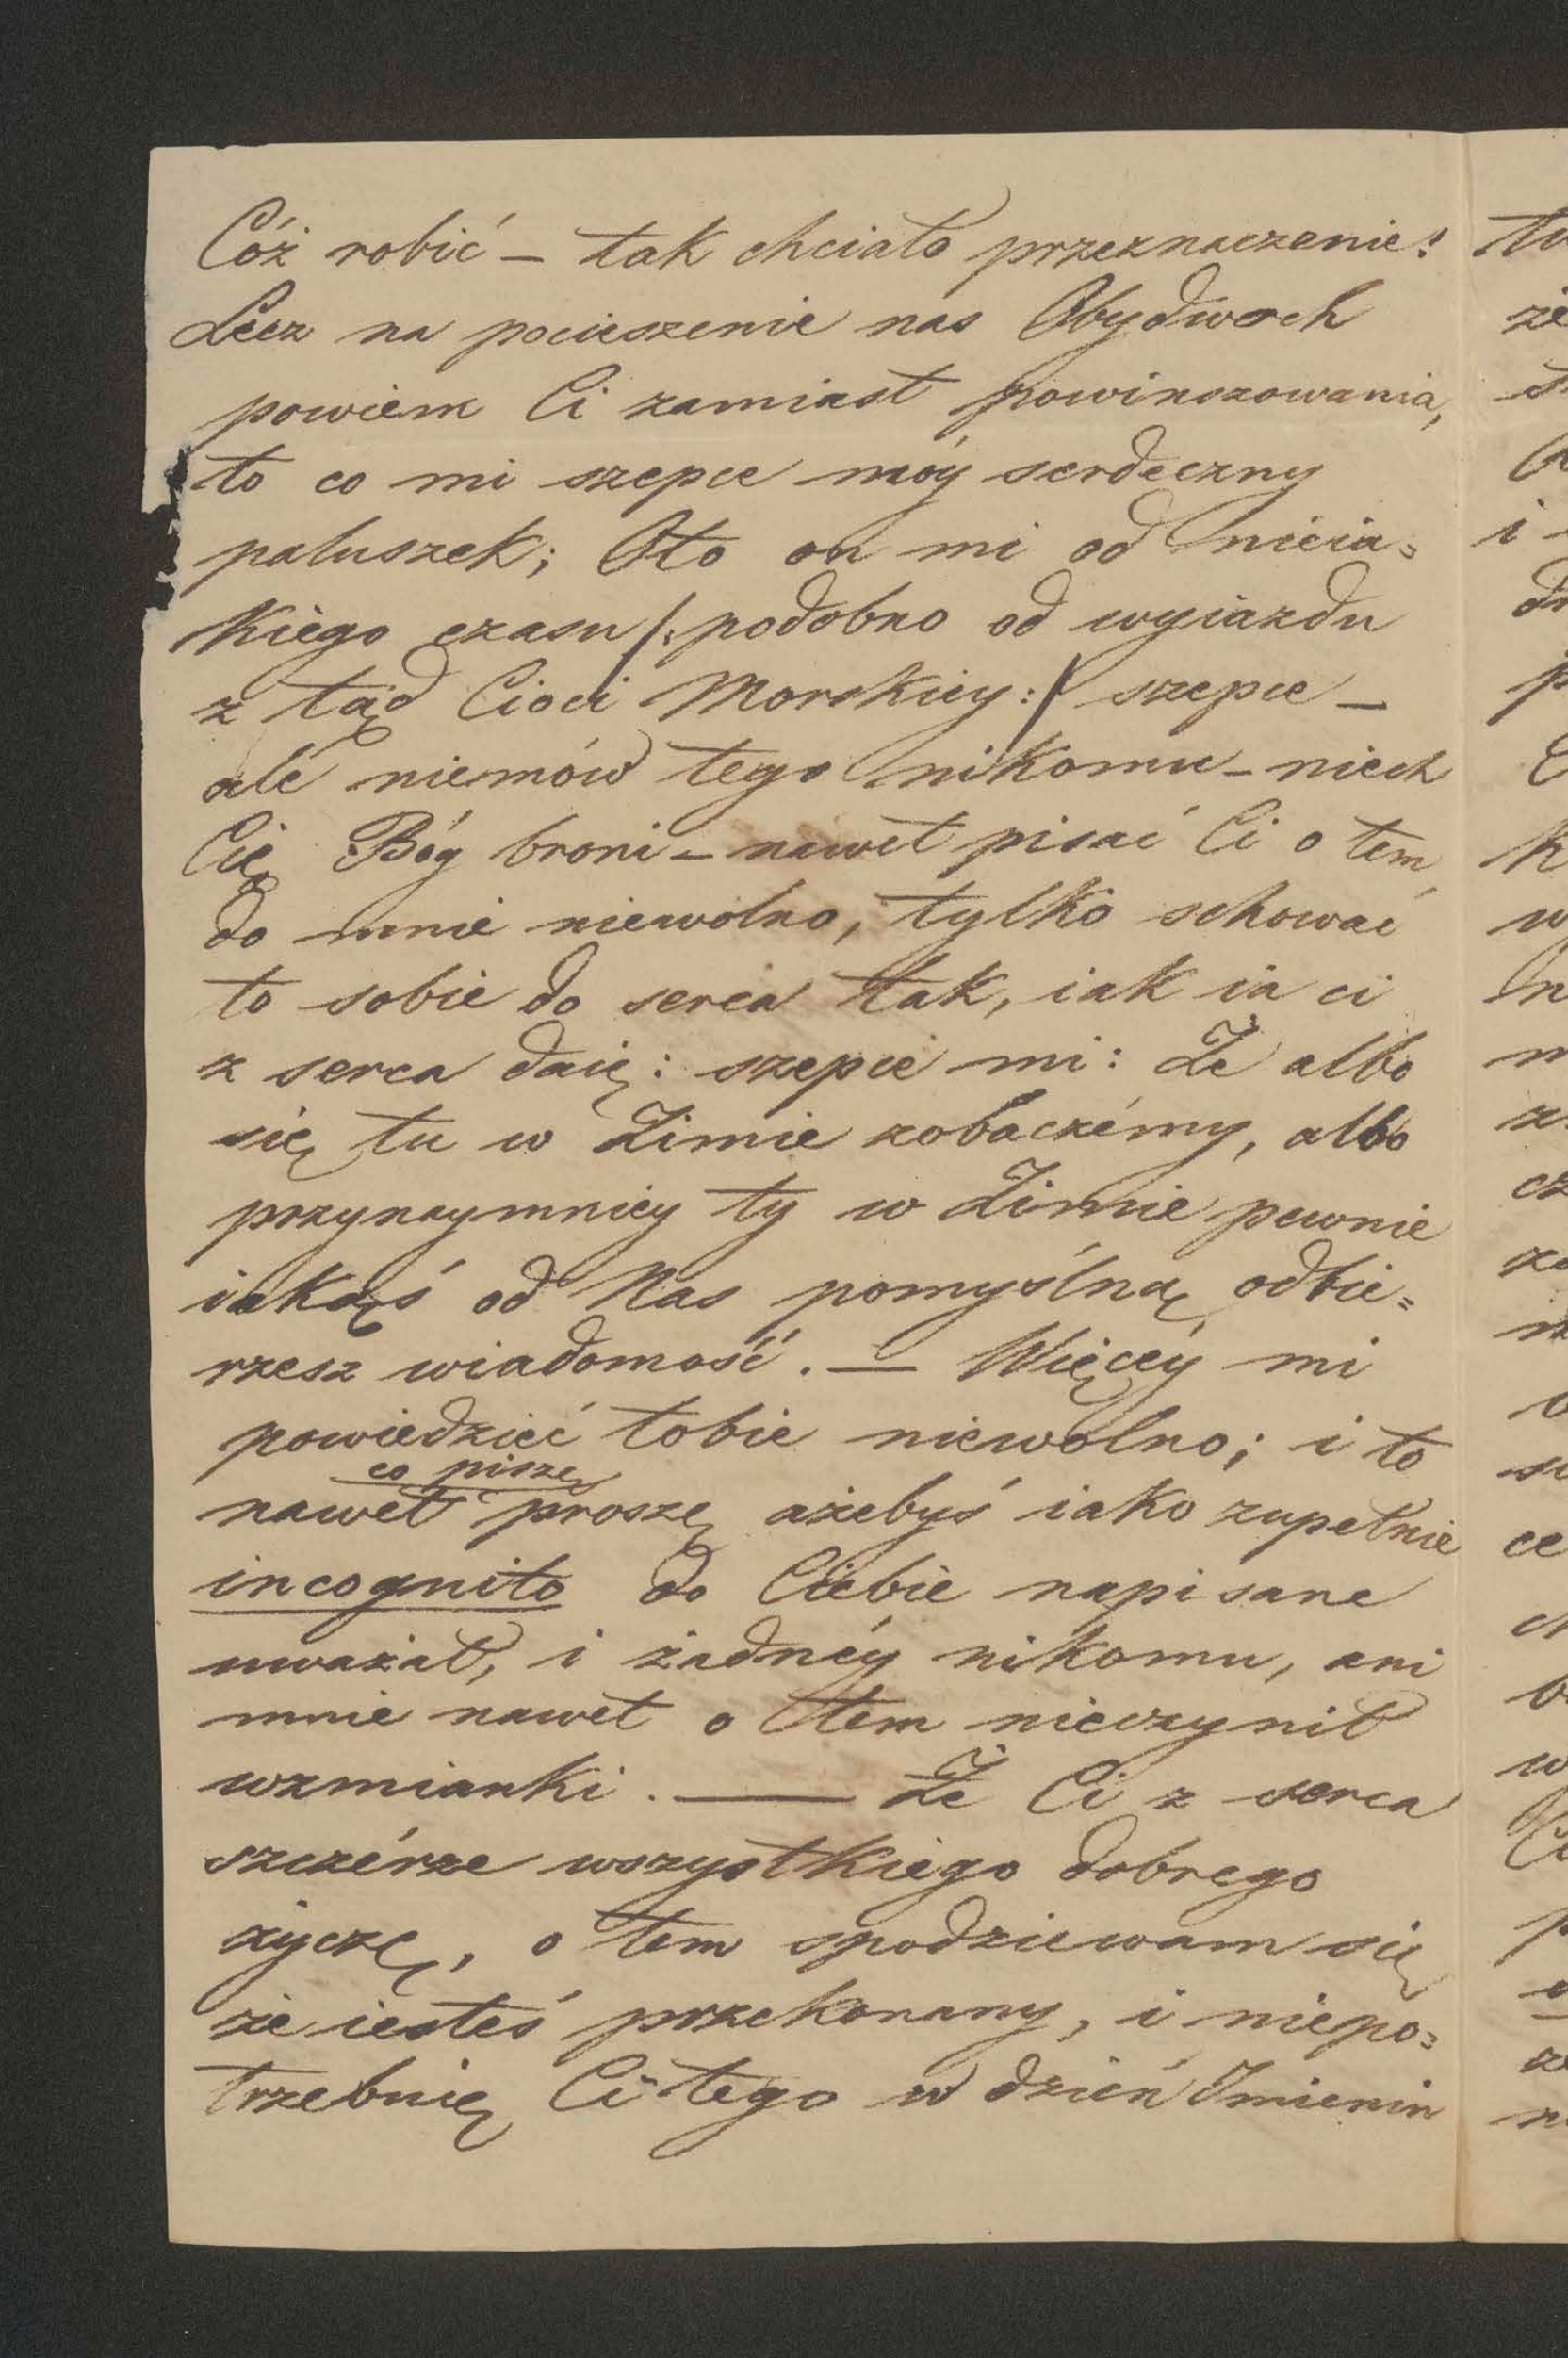 Cóż robić – tak chciało przeznaczenie!
Lecz na pocieszenie nas Obydwoch
powiem Ci zamiast powinszowania,
to co mi szepce móy serdeczny
paluszek; Oto on mi od nieia=
kiego czasu /: podobno od wyiazdu
z tąd Cioci Morskiey :/ szepce –
ale niemów tego nikomu – niech
Cię Bóg broni – nawet pisać Ci o tem
do mnie niewolno, tylko schować
to sobie do serca tak, iak ia ci
z serca daię: szepce mi: Że albo
się tu w Zimie zobaczémy, albo
przynaymniey ty w Zimie pewnie
iakąś od Nas pomyślną odbie=
rzesz wiadomość. — Więcéy mi
powiedzieć tobie niewolno; i to
co piszę
nawet proszę ażebyś iako zupełnie
incognito do Ciebie napisane
uważał, i żadnéy nikomu, ani
mnie nawet o tem nieczynił
wzmianki. — Że Ci z serca
szczérze wszystkiego dobrego
życzę, o tem spodziewam się
że iesteś przekonany, i niepo=
trzebnię Ci tego w dzień Imienin